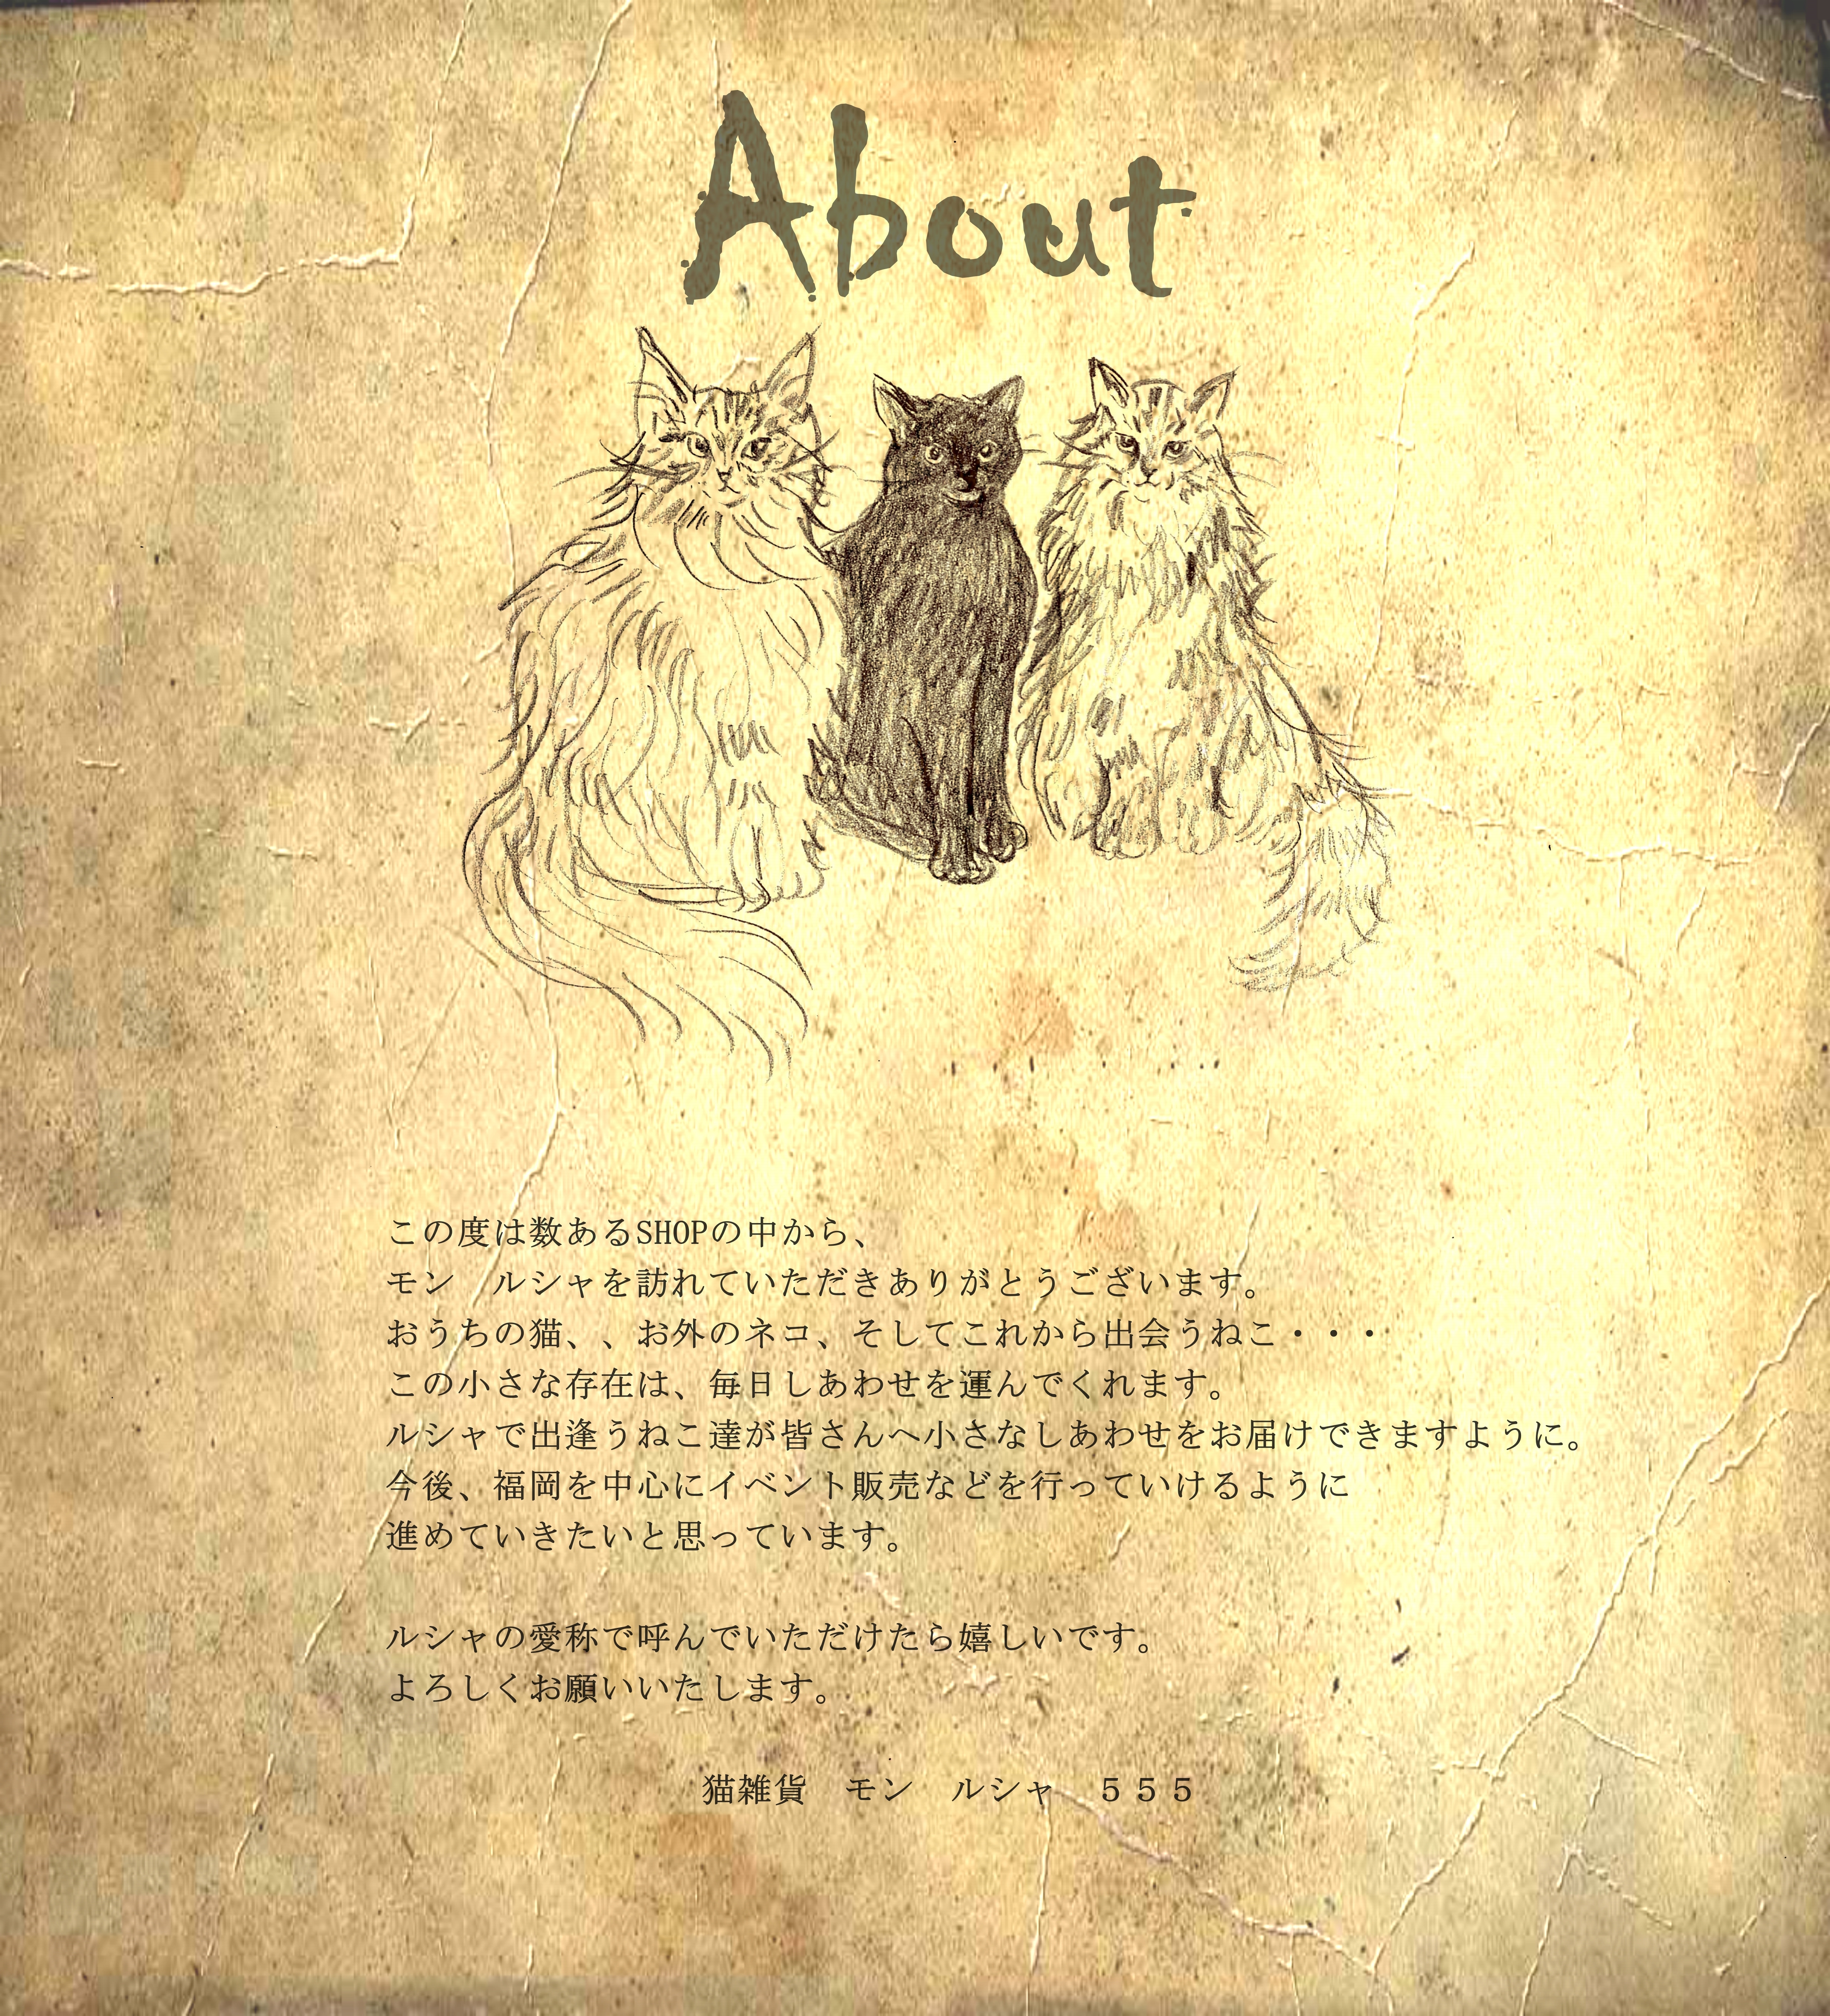 About
この度は数あるSHOPの中から、
モン　ルシャを訪れていただきありがとうございます。
おうちの猫、、お外のネコ、そしてこれから出会うねこ・・・
この小さな存在は、毎日しあわせを運んでくれます。
ルシャで出逢うねこ達が皆さんへ小さなしあわせをお届けできますように。
今後、福岡を中心にイベント販売などを行っていけるように
進めていきたいと思っています。
ルシャの愛称で呼んでいただけたら嬉しいです。
よろしくお願いいたします。
猫雑貨　モン　ルシャ　５５５